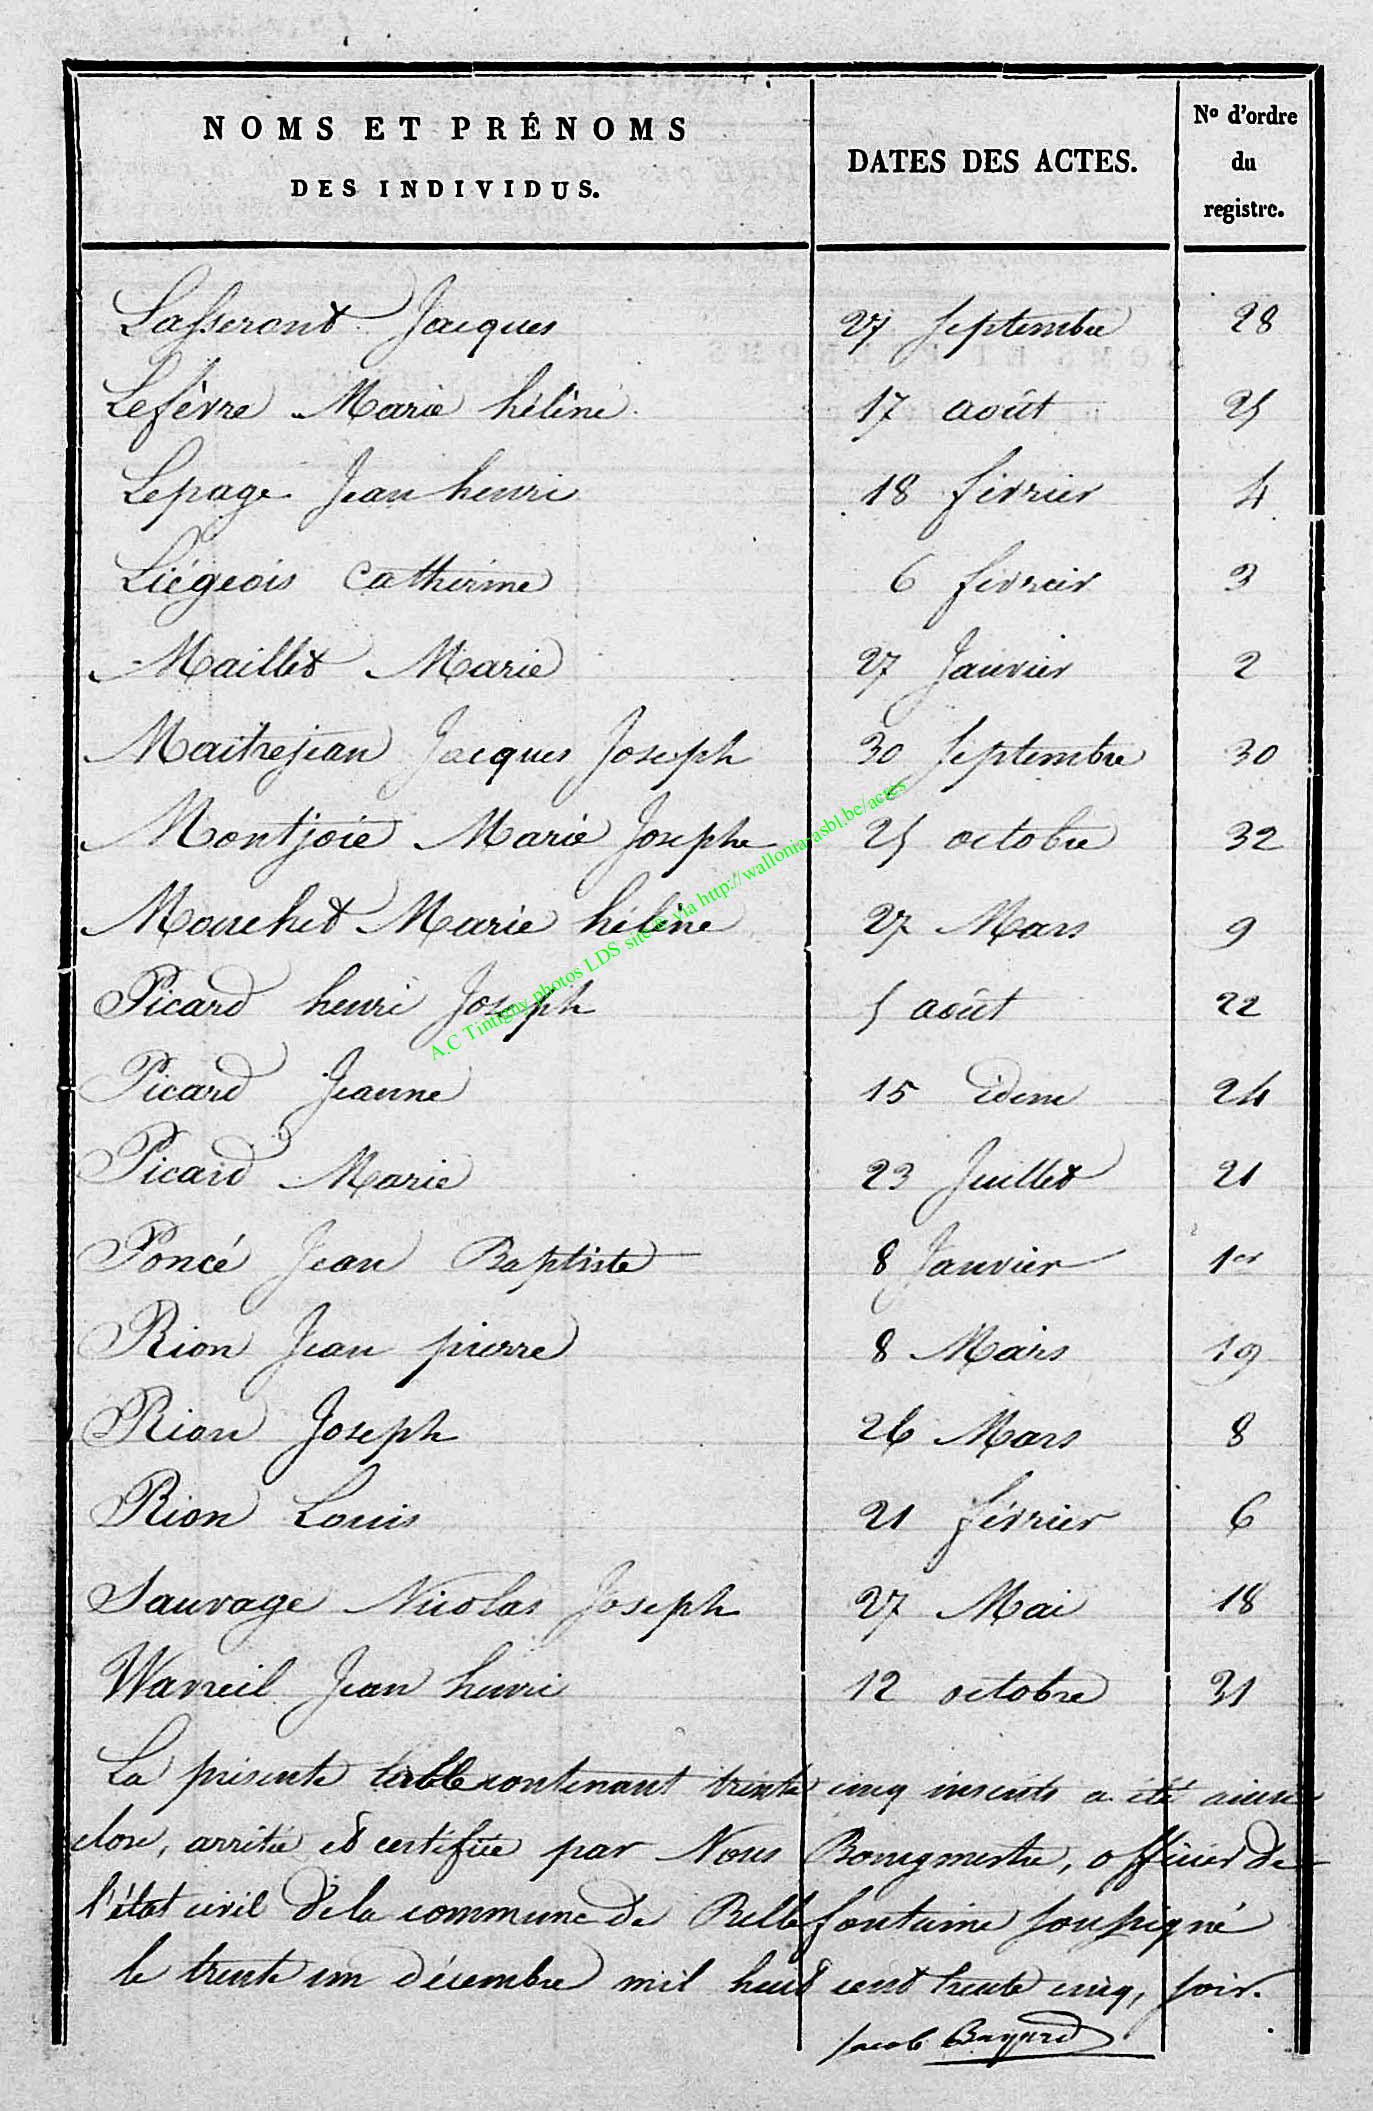 NOMS ET PRÉNOMS
DES INDIVIDUS.
DATES DES ACTES.
No d'ordre
du
registre.
Lasseront Jacques 27 Septembre 28
Lefèvre Marie hélène 17 août 25
Lepage Jean henri 18 février 4
Liégeois Catherine 6 février 3
Maillet Marie 27 Janvier 2
Maitrejean Jacques Joseph 30 Septembre 30
Montjoie Marie Josephe 25 octobre 32
Mouchet Marie hélène 27 Mars 9
Picard henri Joseph 5 août 22
Picard Jeanne 15 idem 24
Picard Marie 23 Juillet 21
Poncé Jean Baptiste 8 Janvier 1er
Rion Jean pierre 8 Mars 19
Rion Joseph 26 Mars 8
Rion Louis 21 février 6
Sauvage Nicolas Joseph 27 Mai 18
Waneil Jean henri 12 octobre 31
La présente table contenant trente cinq inscrits a été ainsi
close, arrêtée et certifiée par Nous Bourgmestre, officier de
l'état civil de la commune de Bellefontaine soussigné
le trente un décembre mil huit cent trente cinq, soir.
Jacob Bayard
A.C Tintigny photos LDS site & via http://walloniarasbl.be/actes